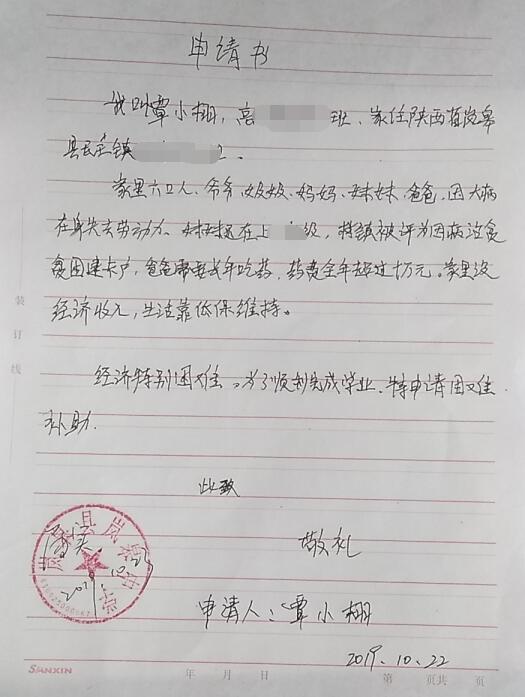 申请书
我叫覃小栩，高 班、家住陕西省岚皋
县民主镇 。
家里六口人、爷爷、奶奶、妈妈、妹妹、爸爸，因大病
在身失去劳动力、妹妹还在上 级，在镇被评为因病致贫
贫困建卡户，爸爸需要长年吃药，药费全年超过十万元。家里没
经济收入，生活靠低保维持。
经济特别困难。为了顺利完成学业、特申请困难
补助.
此致
敬礼
属实
2019.10.23
岚皋县岚皋中学
申请人：覃小栩
2019.10.22
装订线
SANXIN
年 月 日
第 页共 页